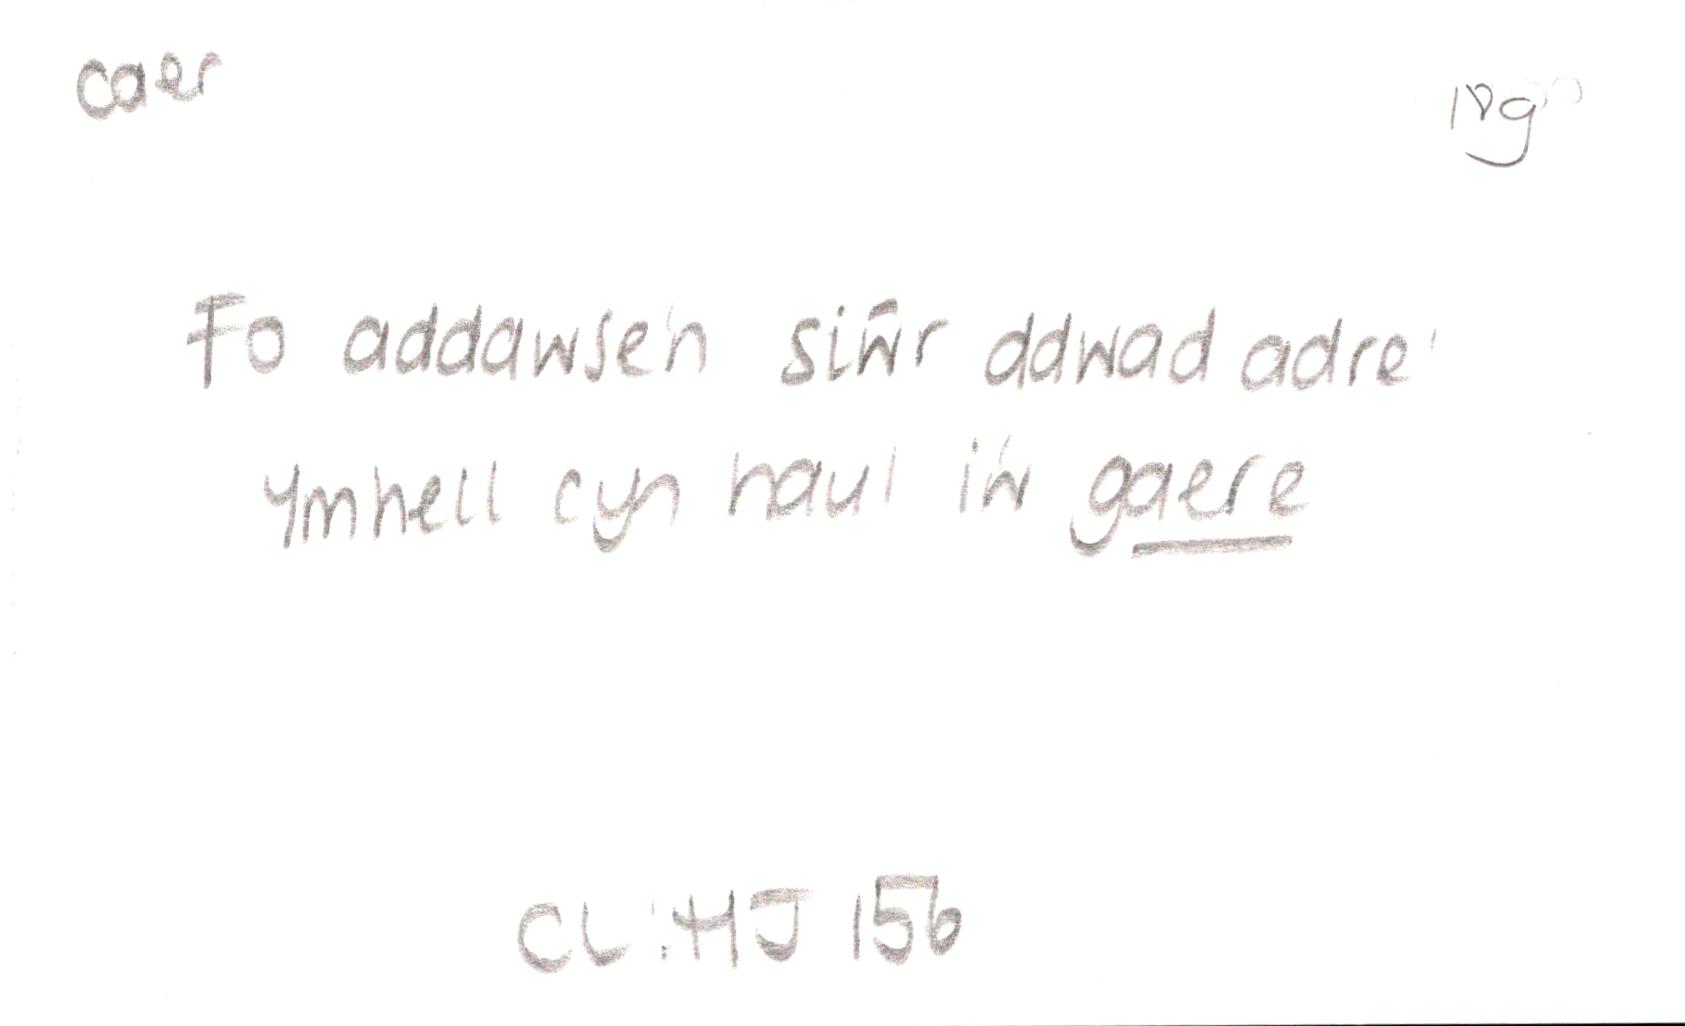 caer
18g
Fo addawsen siŵr ddwad adre'
ymhell cyn haul i'w gaere
CL:HJ 156